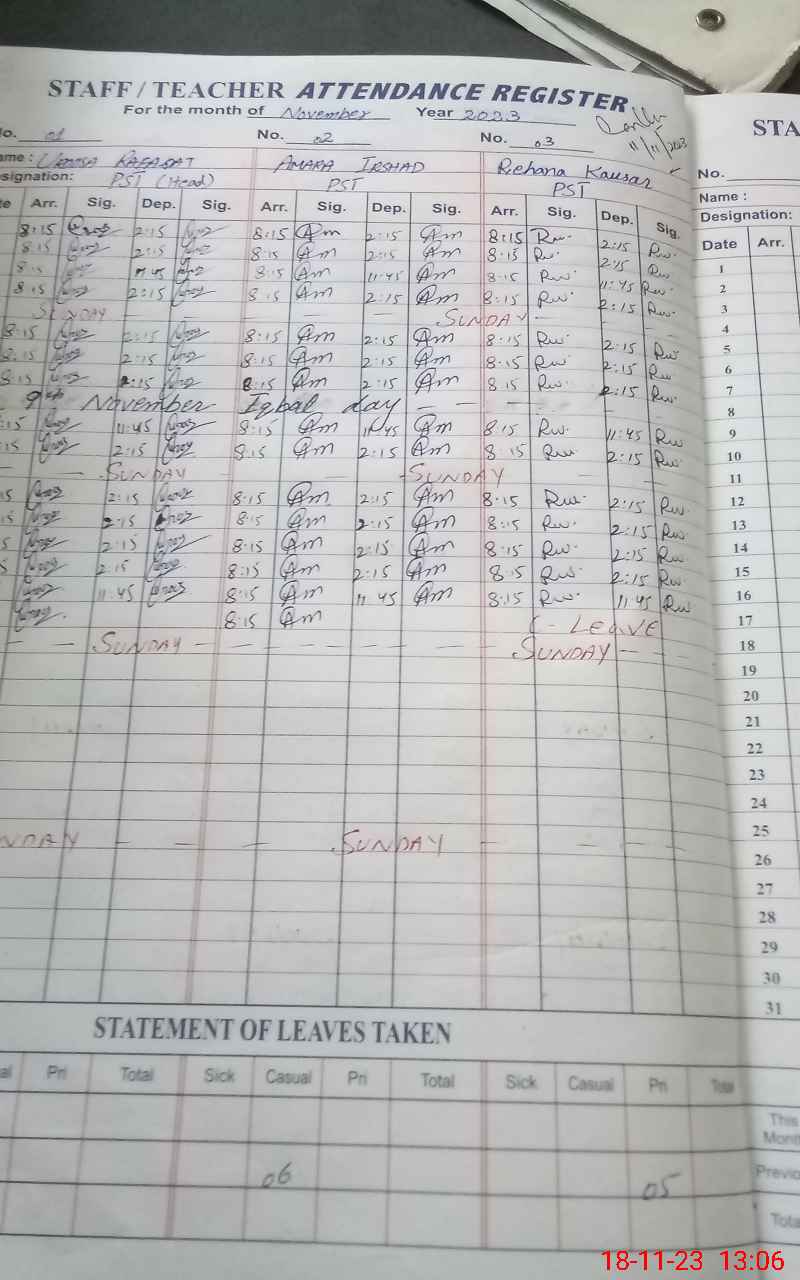 STAFF / TEACHER ATTENDANCE REGISTER
For the month of November Year 2023
11/11/2023
No. 01 No. 02 No. 03
ame : RAFAQAT AMARA IRSHAD Rehana Kausar
signation: PST (Head) PST PST
te Arr. Sig. Dep. Sig. Arr. Sig. Dep. Sig. Arr. Sig. Dep. Sig.
8:15 2:15 8:15 Am 2:15 Am 8:15 Rw. 2:15 Rw.
8:15 2:15 8:15 Am 2:15 Am 8:15 Rw. 2:15 Rw.
8:15 11:45 8:15 Am 11:45 Am 8:15 Rw. 11:45 Rw.
8:15 2:15 8:15 Am 2:15 Am 8:15 Rw. 2:15 Rw.
SUNDAY — — — — — SUNDAY — — —
8:15 2:15 8:15 Am 2:15 Am 8:15 Rw. 2:15 Rw.
8:15 2:15 8:15 Am 2:15 Am 8:15 Rw. 2:15 Rw.
8:15 2:15 8:15 Am 2:15 Am 8:15 Rw. 2:15 Rw.
9th November Iqbal day — — — — —
:15 11:45 8:15 Am 11:45 Am 8:15 Rw. 11:45 Rw
:15 2:15 8:15 Am 2:15 Am 8:15 Rw. 2:15 Rw.
— — SUNDAY — — SUNDAY
15 2:15 8:15 Am 2:15 Am 8:15 Rw. 2:15 Rw.
15 2:15 8:15 Am 2:15 Am 8:15 Rw. 2:15 Rw.
5 2:15 8:15 Am 2:15 Am 8:15 Rw. 2:15 Rw.
5 2:15 8:15 Am 2:15 Am 8:15 Rw. 2:15 Rw.
11:45 8:15 Am 11:45 Am 8:15 Rw. 11:45 Rw
8:15 Am C - LEAVE
— — SUNDAY — — — — — — — SUNDAY — —
NDAY — — — SUNDAY — — — —
STATEMENT OF LEAVES TAKEN
al Pri Total Sick Casual Pri Total Sick Casual Pri Total
06 05
STA
No.
Name :
Designation:
Date Arr.
1
2
3
4
5
6
7
8
9
10
11
12
13
14
15
16
17
18
19
20
21
22
23
24
25
26
27
28
29
30
31
This
Mont
Previo
Tota
18-11-23 13:06